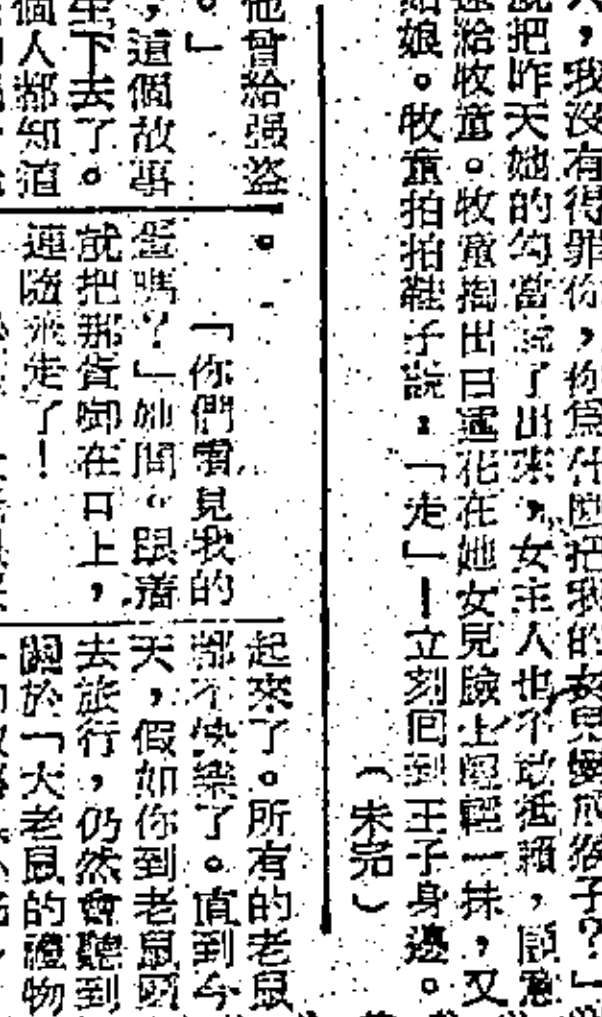 人，我沒有得罪你，你爲什麼把我的女兒變成猴子？」
就把昨天她的勾當說了出來，女主人也不敢抵賴，願意
還給牧童。牧童掏出白蓮花在她女兒臉上輕輕一抹，又
姑娘。牧童拍拍鞋子說：「走」—立刻回到王子身邊。
（未完）
他曾給强盜
。」
，這個故事
下去了。
個人都知道
。
「你們看見我的
蛋嗎？」她問。跟着
就把那蛋啣在口上，
連隨飛走了！
起來了。所有的老鼠
都不快樂了。直到今
天，假如你到老鼠
去旅行，仍然會聽到
關於「大老鼠的禮物